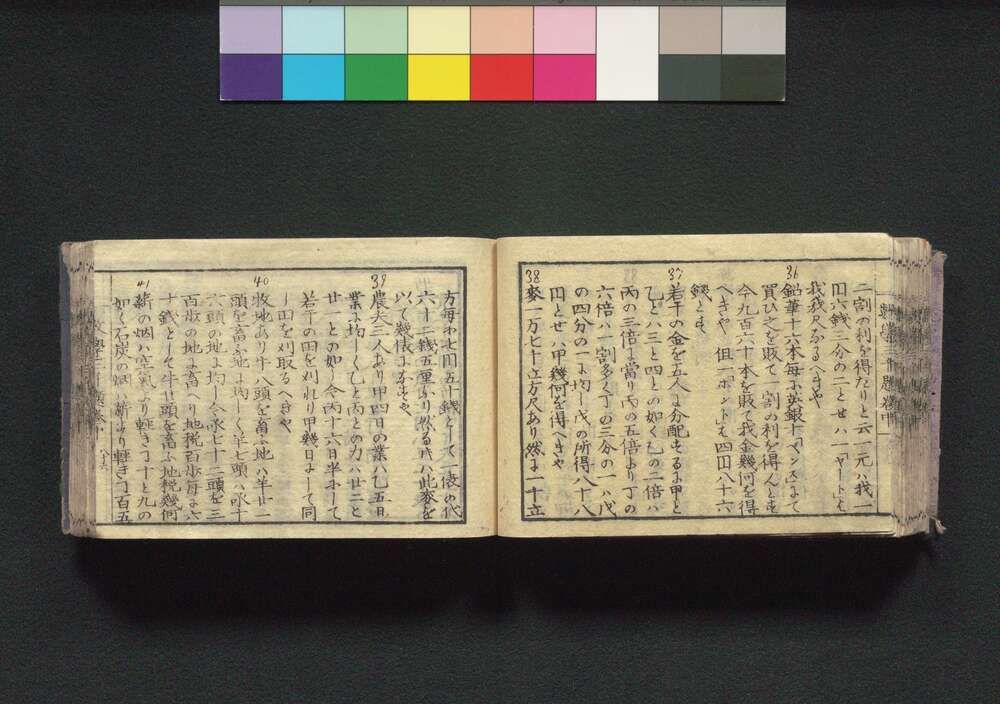 二割の利を得たりと云一元ハ我一
円六錢三分の二とせハ一「ヤールド」も
我幾尺なるへきや
36
鉛華十六本毎に英銀十「ペンス」にて
買ひ之を販て一割の利を得んとす
今九百六十本を販て我金幾何を得
へきや 但一「ポンド」も四円八十六
錢とす
37
若干の金を五人に分配するに甲と
乙とハ三と四との如く乙の二倍ハ
丙の三倍に當り丙の五倍より丁の
六倍ハ一割多く丁の三分の一ハ戊
の四分の一に均し戊の所得八十八
円とせハ甲幾何を得へきや
38
麥一万七十立方尺あり然に一十立
方毎に七円五十錢として一俵の代
六十二錢五厘なり然る時ハ此麥を
以て幾俵になすや
39
農夫三人あり甲四日の業ハ乙五日
業に均しく乙と丙との力ハ廿二と
廿一との如し今丙十六日半にして
若干の田を刈れり甲幾日にして同
し田を刈取るへきや
40
牧地あり牛八頭を畜ふ地ハ羊廿一
頭を畜ふ地に均しく羊七頭ハ豕十
六頭の地に均し今豕七十二頭を三
百歩の地に畜へり地税百歩毎に六
十錢として牛廿頭を畜ふ地税幾何
41
薪の烟ハ空氣より軽き十と九の
如く石炭の烟ハ薪より軽き百五